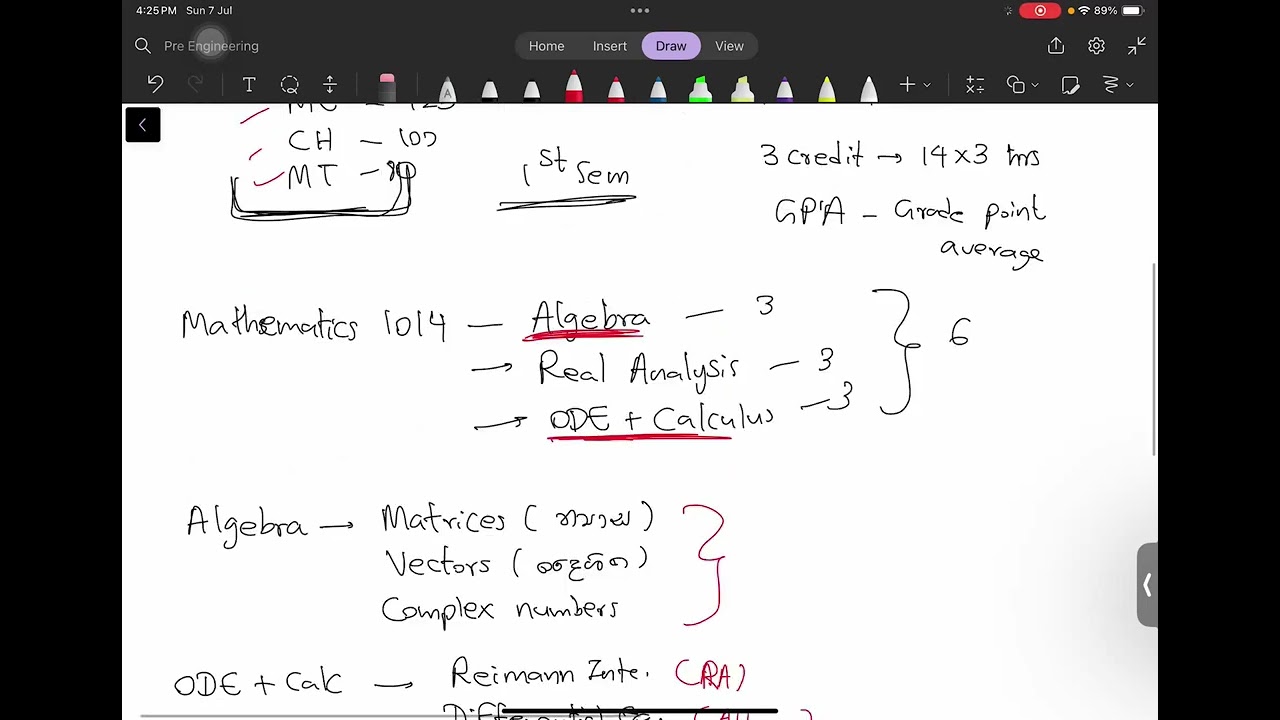 4:25 PM Sun 7 Jul
89%
Pre Engineering
Home Insert Draw View
CH – 100
MT –
1st Sem
3 credit → 14 x 3 hrs
GPA – Grade point
average
Mathematics 1014 — Algebra — 3
→ Real Analysis — 3
→ ODE + Calculus — 3
6
Algebra → Matrices (න්‍යාස)
Vectors (දෛශික)
Complex numbers
ODE + Calc → Reimann Inte. (RA)